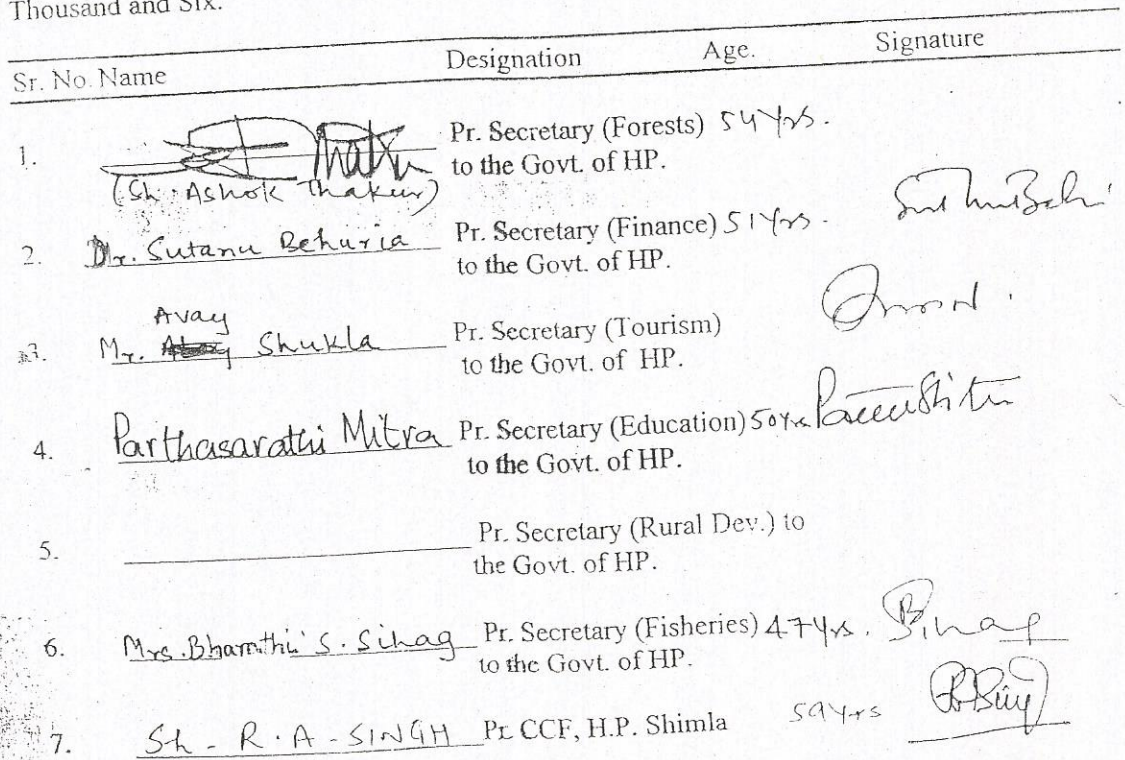 Thousand and Six.
Sr. No. Name Designation Age. Signature
1. Thakur Pr. Secretary (Forests) 54 Yrs.
to the Govt. of HP.
(Sh. Ashok Thakur)
2. Dr. Sutanu Behuria Pr. Secretary (Finance) 51 Yrs.
to the Govt. of HP.
Avay
3. Mr. Shukla Pr. Secretary (Tourism)
to the Govt. of HP.
4. Parthasarathi Mitra Pr. Secretary (Education) 50 Yrs
to the Govt. of HP.
5. Pr. Secretary (Rural Dev.) to
the Govt. of HP.
6. Mrs. Bharathi S. Sihag Pr. Secretary (Fisheries) 47 Yrs. Sihag
to the Govt. of HP.
7. Sh - R. A - SINGH Pr. CCF, H.P. Shimla 59 Yrs